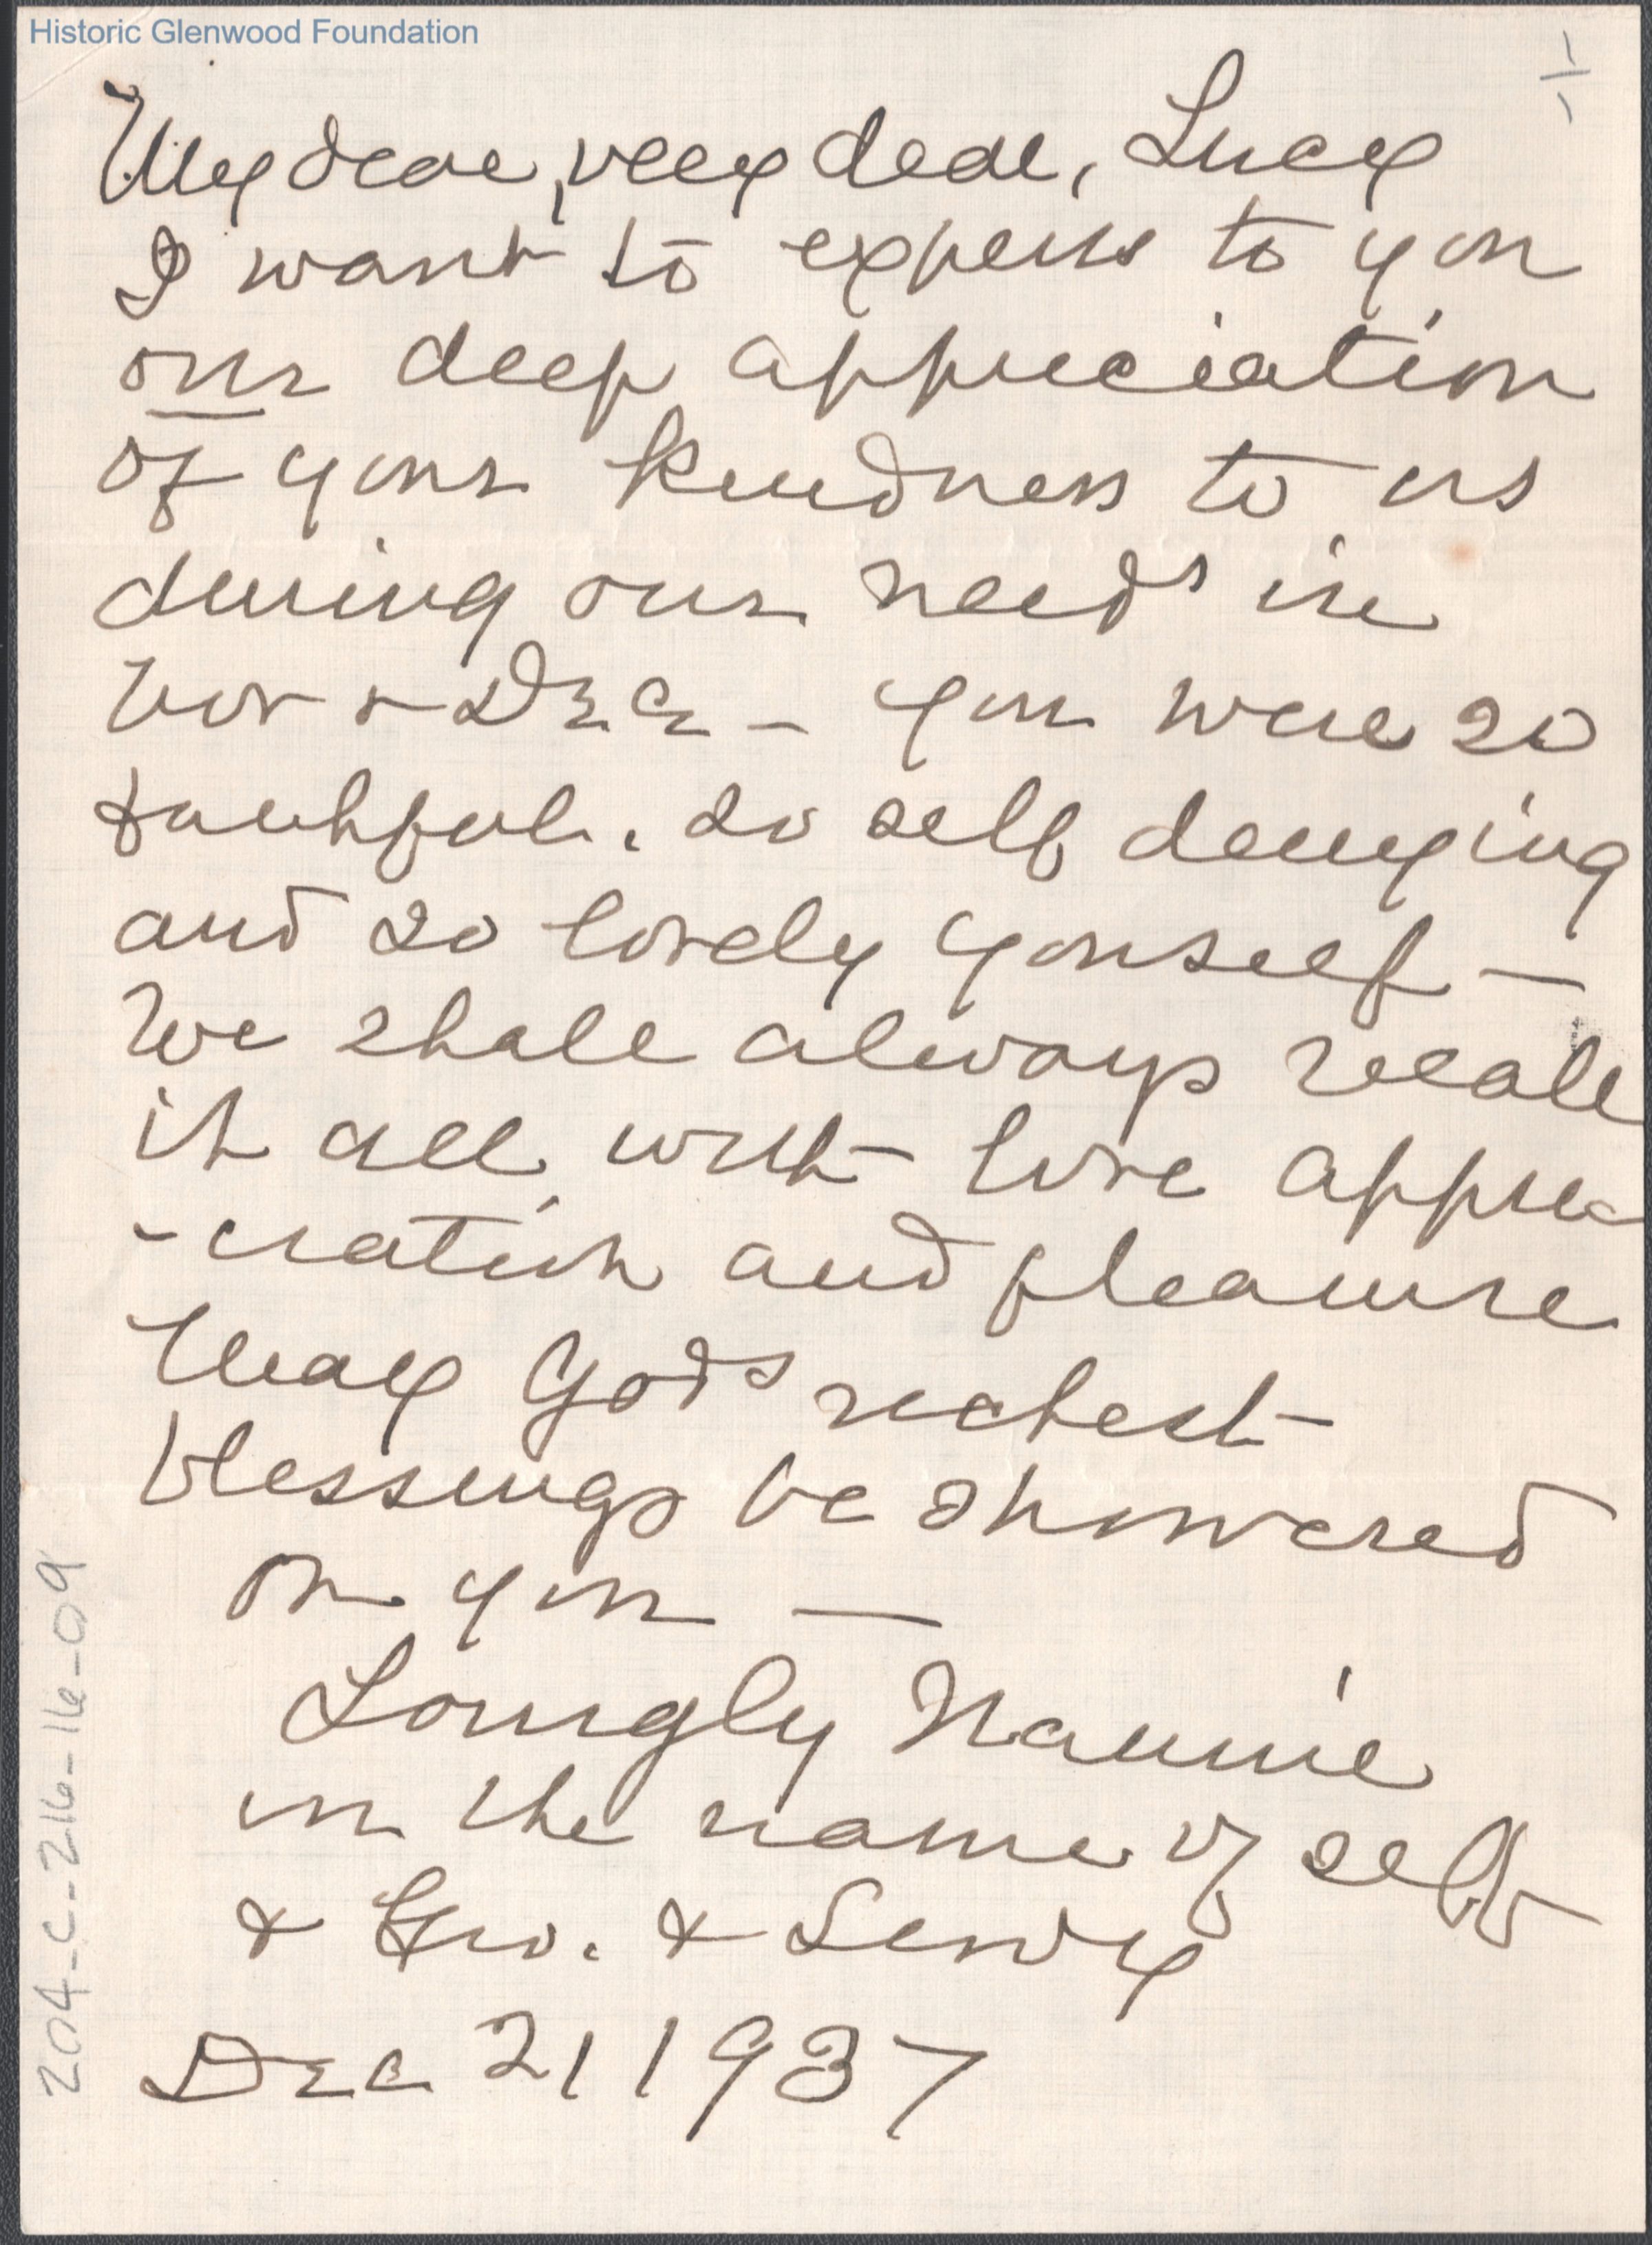 Historic Glenwood Foundation
1/1
My dear, very dear, Lucy
I want to express to you
our deep appreciation
of your kindness to us
during our needs in
Nov & Dec - you were so
faithful. so self denying
and so lovely yourself -
We shall always recall
it all, with love appre
-ciation and pleasure
May Gods richest
blessings be showered
on you -
Lovingly Nannie
in the name of self
& Geo. &
Dec 21 1937
204-C-216-16-09